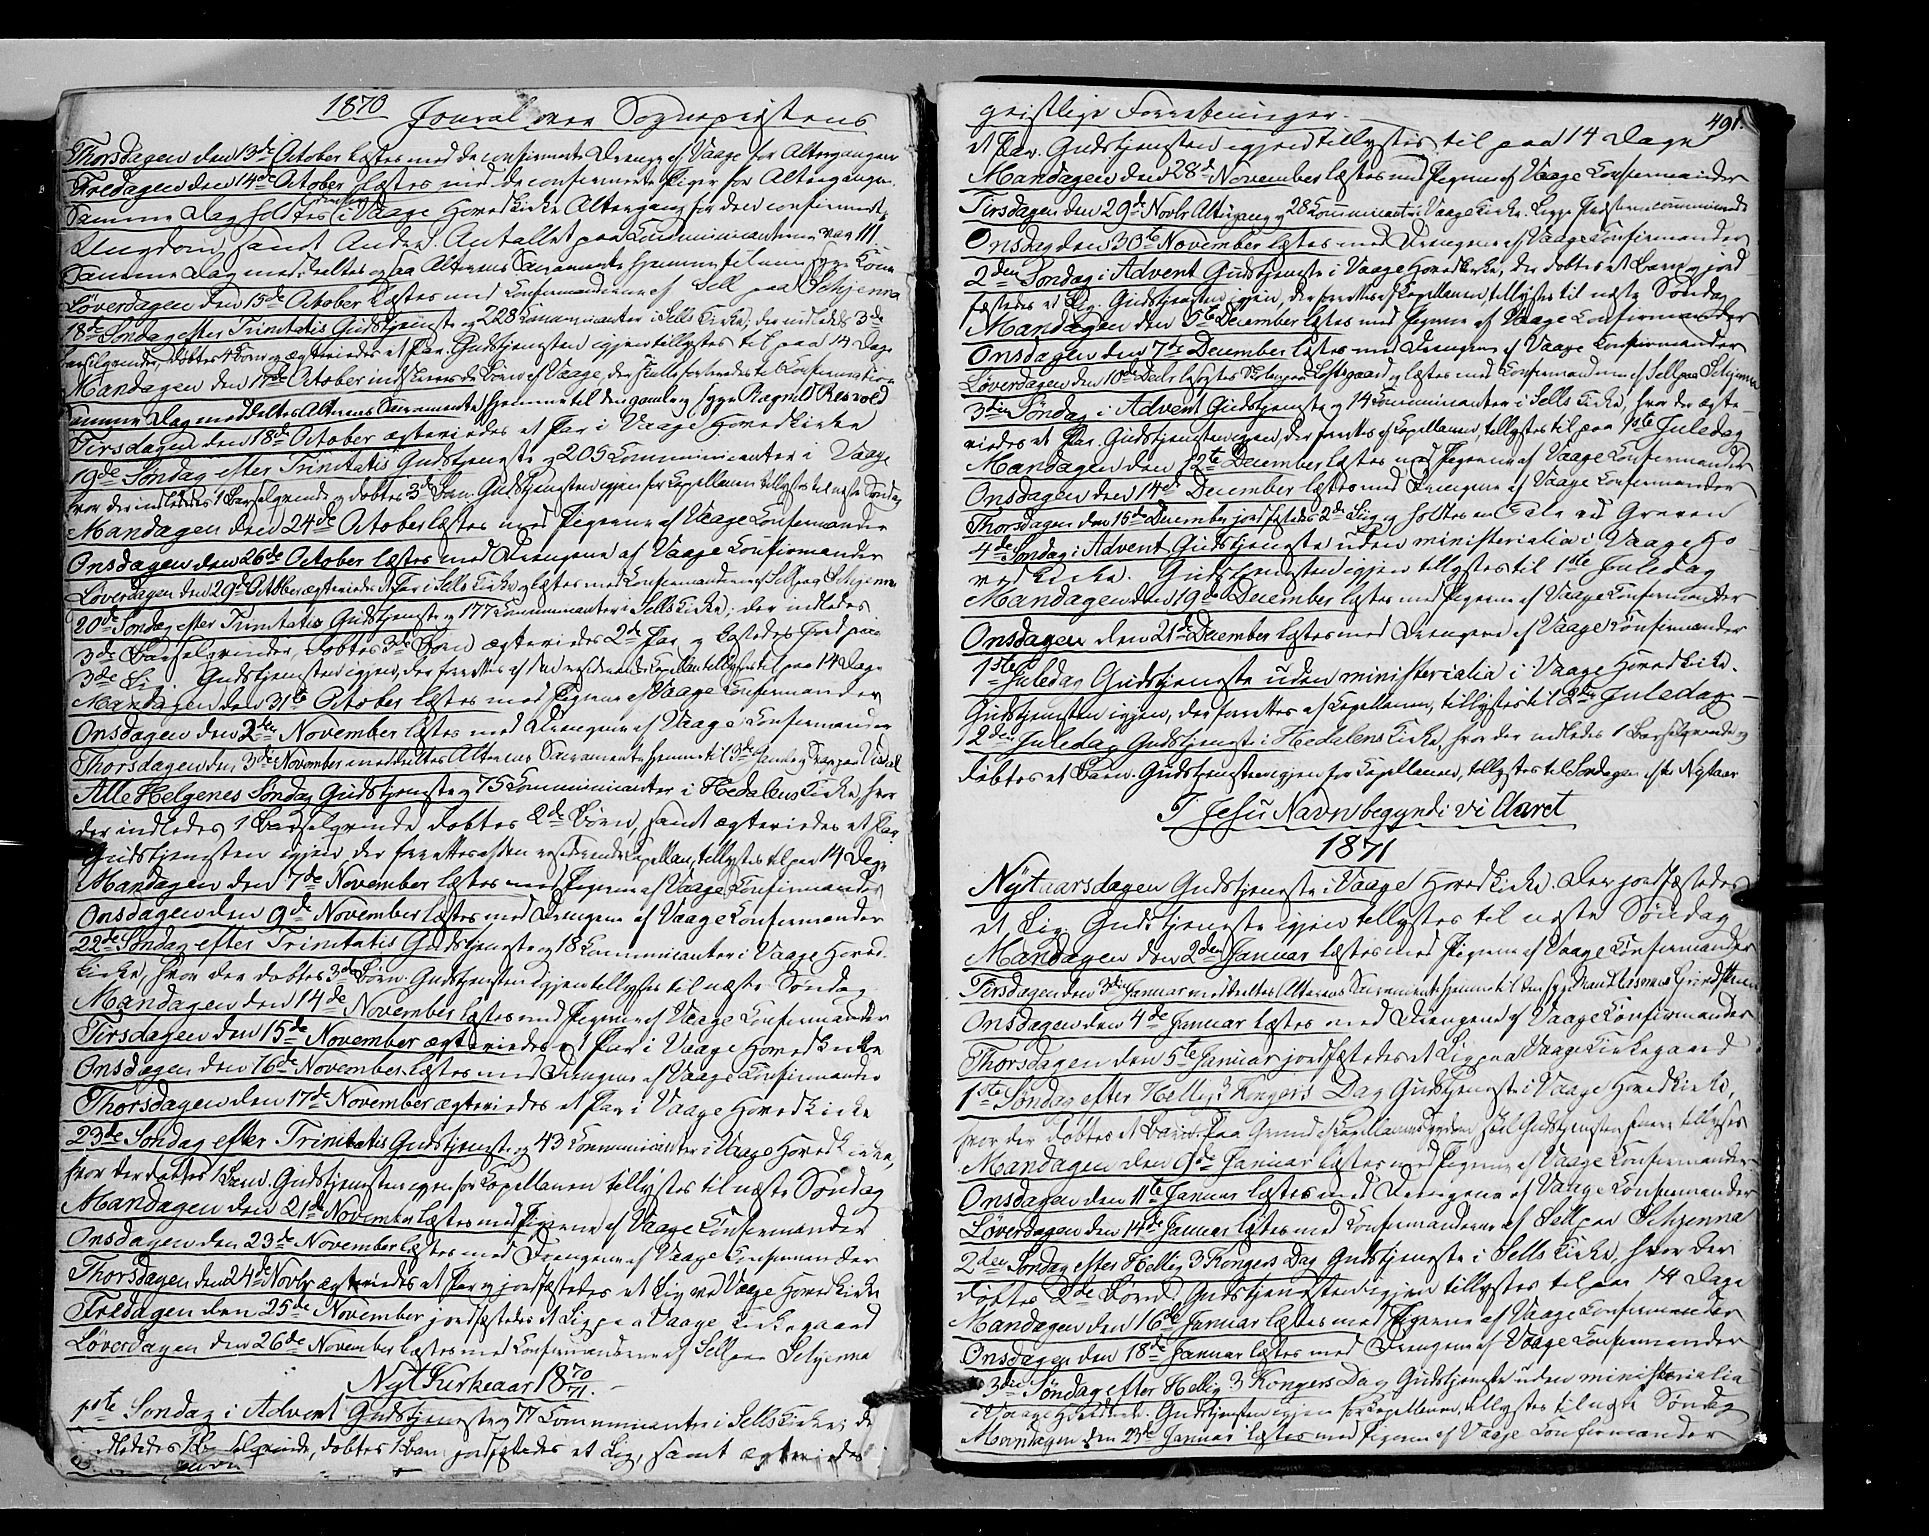 1870 Joural over Sognepræstens
Thorsdagen den 13de October læstes med de confirmerte Drenge af Vaage for Altergangen
Fredagen den 14de October læstes med de confirmerte Piger for Altergangen.
Samme Dag holdtes i Vaage Hovedkirke Altergang for den confirmerte
Ungdom, samt Andre. Antallet paa Communicanterne var 111.
Samme Dag meddeeltes ogsaa Alterens Sacramente hjemme til
Løverdagen den 15de October læstes med Confirmanderne af Sell paa Sehjenna
18de Søndag efter Trinitatis Gudstjenste og 228 Communicanter i Sells Kirke, der indledes 3de
Barselqvinder, døbtes 4 Børn og ægteviedes et Par. Gudstjensten igjen tillystes til paa 14 Dage
Mandagen den 17de October indskreves de Børn af Vaage, der skulle forberedes til Confirmation
Samme Dag meddeltes Alterens Sacramente hjemme til den gamle og syge Ragnild Resvold
Tirsdagen den 18de October ægteviedes et Par i Vaage Hovedkirke
19de Søndag efter Trinitatis Gudstjenste og 205 Communicanter i Vaage
hvor der indledes 1 Barselqvinde og døbtes 3de Børn. Gudstjensten igjen for Capellanen tillystes til næste Søndag
Mandagen den 24de October læstes med Pigerne af Vaage Confirmander
Onsdagen den 26de October læstes med Drengene af Vaage Confirmander
Løverdagen den 29de October ægteviedes et Par i Sells Kirke og læstes med Confirmanderne af Sell paa Sehjenna
20de Søndag efter Trinitatis Gudstjenste og 177 Communicanter i Sells Kirke; der indledes
3de Barselqvinder, døbtes 3de Børn ægteviedes 2de Par og kastedes Jord paa
3de Lig. Gudstjensten igjen, der forrettes af den residerende Capellan tillystes til paa 14 Dage
Mandagen den 31te October læstes med Pigerne af Vaage Confirmander
Onsdagen den 2den November læstes med Drengene af Vaage Confirmander
Thorsdagen den 3de November meddeltes Alterens Sacramente hjemme til 3de Gamle og Svage paa
Alle Helgenes Søndag Gudstjenste og 75 Communicanter i Hedalens Kirke hvor
der indledes 1 Barselqvinde døbtes 2de Børn, samt ægteviedes et Par
Gudstjensten igjen der forrettes af den residerende Capellan, tillystes til paa 14 Dage
Mandagen den 7de November læstes med Pigerne af Vaage Confirmander
Onsdagen den 9de November læstes med Drengene af Vaage Confirmander
22de Søndag efter Trinitatis Gudstjenste og 18 Communicanter i Vaage Hoved-
kirke, hvor der døbtes 3de Børn. Gudstjensten igjen tillystes til næste Søndag
Mandagen den 14de November læstes med Pigerne af Vaage Confirmander
Tirsdagen den 15de November ægteviedes et Par i Vaage Hovedkirke
Onsdagen den 16de November læstes med Drengene af Vaage Confirmander
Thorsdagen den 17de November ægteviedes et Par i Vaage Hovedkirke
23de Søndag efter Trinitatis Gudstjenste og 43 Communicanter i Vaage Hovedkirke,
hvor der døbtes 1 Barn. Gudstjensten igjen for Capellanen tillystes til næste Søndag
Mandagen den 21de November læstes med Pigerne af Vaage Confirmander
Onsdagen den 23de November læstes med Drengene af Vaage Confirmander
Thorsdagen den 24de Novbr ægteviedes et Par og jordfæstedes et Lig ved Vaage Hovedkirke
Fredagen den 25de November jordfæstedes et Lig paa Vaage Kirkegaard
Løverdagen den 26de November læstes med Confirmanderne af Sell paa Sehjenna
Nyt Kirkeaar 1870/71.
1ste Søndag i Advent Gudstjenste og 77 Communicanter i Sells Kirke; der
indledes 1 Barselqvinde, døbtes 1 Barn jordfæstedes et Lig, samt ægteviedes
geistlige Forretninger. 491.
et Par. Gudstjensten igjen tillystes til paa 14 Dage
Mandagen den 28de November læstes med Pigerne af Vaage Confirmander
Tirsdagen den 29de Novbr Altergang og 28 Communicanter i Vaage Kirke.
Onsdag den 30te November læstes med Drengene af Vaage Confirmander
2den Søndag i Advent Gudstjenste i Vaage Hovedkirke, der døbtes et Barn og jord-
fæstedes et Lig. Gudstjensten igjen, der forrettes af Capellanen, tillystes til næste Søndag
Mandagen den 5te December læstes med Pigerne af Vaage Confirmander
Onsdagen den 7de December læstes med Drengene af Vaage Confirmander
Løverdagen den 10de Decbr læstes med Confirmanderne af Sell paa Sehjenna
3die Søndag i Advent Gudstjenste og 14 Communicanter i Sells Kirke, hvor der ægte-
viedes et Par. Gudstjensten igjen, der forrettes af Capellanen, tillystes til paa 1ste Juledag
Mandagen den 12te December læstes med Pigerne af Vaage Confirmander
Onsdagen den 14de December læstes med Drengene af Vaage Confirmander
Thorsdagen den 15de December jordfæstedes 2de Liig og holdtes en Tale ved Graven
4de Søndag i Advent Gudstjenste uden ministerialia i Vaage Ho-
vedkirke. Gudstjensten igjen tillystes til 1ste Juledag
Mandagen den 19de December læstes med Pigerne af Vaage Confirmander
Onsdagen den 21de December læstes med Drengene af Vaage Confirmander
1ste Juledag Gudstjenste uden ministerialia i Vaage Hovedkirke.
Gudstjensten igjen, der forrettes af Capellanen, tillystes til 2den Juledag
2den Juledag Gudstjenste i Hedalens Kirke, hvor der indledes 1 Barselqvinde og
døbtes et Barn. Gudstjensten igjen for Capellanen, tillystes til Søndagen efter Nytaar
I Jesu Navn begynde vi Aaret
1871
Nytaarsdagen Gudstjenste i Vaage Hovedkirke. Der jordfæstedes
et Lig. Gudstjenste igjen tillystes til næste Søndag
Mandagen den 2den Januar læstes med Pigerne af Vaage Confirmander
Tirsdagen den 3die Januar meddeeltes Alterens Sacramente hjemme til den syge Mand Rasmus
Onsdagen den 4de Januar læstes med Drengene af Vaage Confirmander
Thorsdagen den 5te Januar jordfæstedes et Lig paa Vaage Kirkegaard
1ste Søndag efter Hellig 3 Kongers Dag Gudstjenste i Vaage Hovedkirke,
hvor der døbtes et Barn. Paa Grund af Capellanens Sygdom skal Gudstjensten senere tillyses
Mandagen den 9de Januar læstes med Pigerne af Vaage Confirmander
Onsdagen den 11te Januar læstes med Drengene af Vaage Confirmander
Løverdagen den 14de Januar læstes med Confirmanderne af Sell paa Sehjenna
2den Søndag efter Hellig 3 Kongers Dag Gudstjenste i Sells Kirke, hvor der
døbtes 2de Børn. Gudstjensten igjen tillystes til paa 14 Dage
Mandagen den 16de Januar læstes med Pigerne af Vaage Confirmander
Onsdagen den 18de Januar læstes med Drengene af Vaage Confirmander
3die Søndag efter Hellig 3 Kongers Dag Gudstjenste uden ministerialia
i Vaage Hovedkirke. Gudstjensten igjen for Capellanen, tillystes til næste Søndag
Mandagen den 23de Januar læstes med Pigerne af Vaage Confirmander